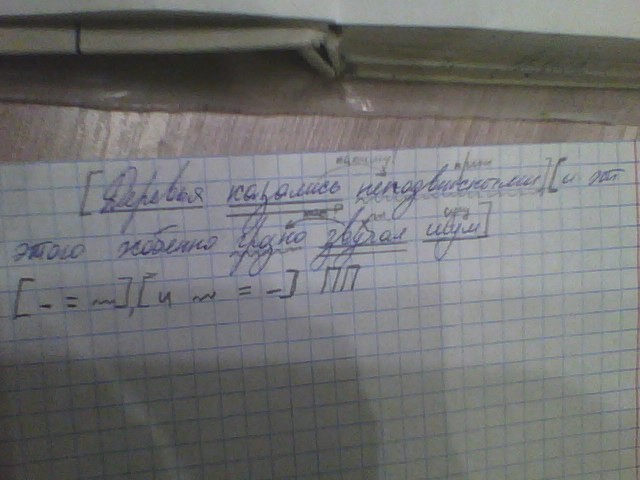 [Деревья казались неподвижными], [и от
этого особенно грозно звучал шум]
[- = ~], [и ~ = -] ПП